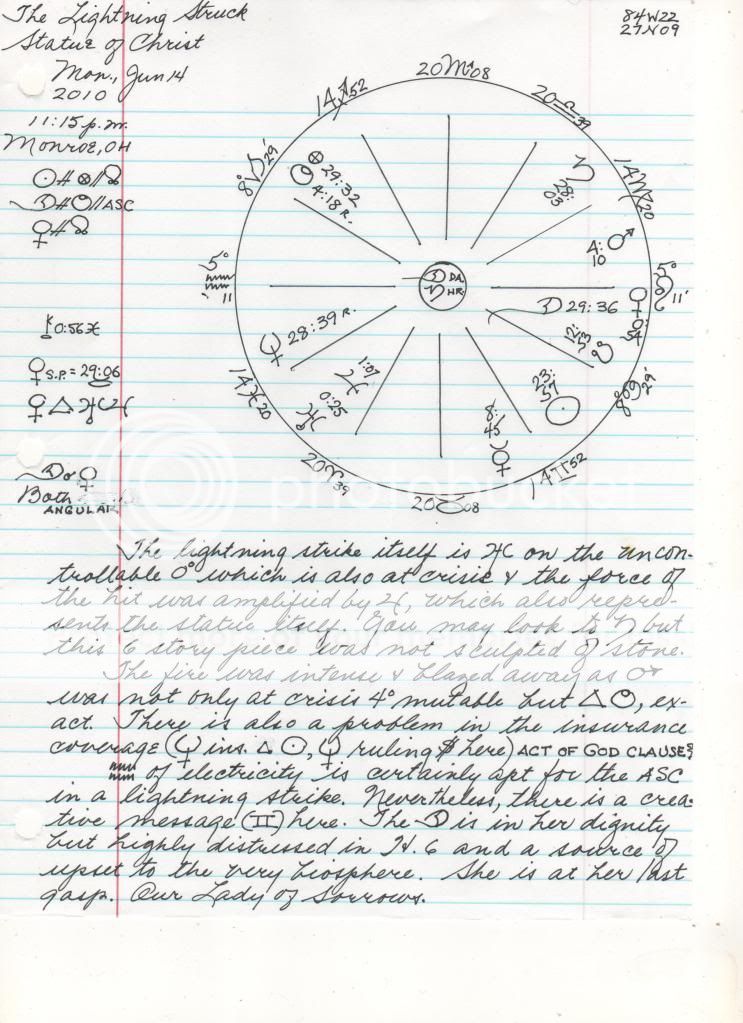 The Lightning Struck
Statue of Christ
Mon., Jun 14
2010
11:15 p.m.
Monroe, OH
84W22
27N09
☉ # ⊗ // ☊
☽ # // ASC
♀ # ☊
0:56 ♓
♀ S.P. = 29:06
♀ △ ♅ ☌ ♃
☽ ♀
Both
ANGULAR
20 ♏ 08
20 ♎ 39
14 ♍ 20
5° ♌ 11'
8° ♋ 29'
14 ♊ 52
20 ♉ 08
20 ♈ 39
14 ♓ 20
5° ♒ 11
8° ♑ 29'
14 ♐ 52
⊗ 29:32
4:18 R.
♄ 28:03
4:10 ♂
☽ 29:36
♀ 0:54
12:53 ☋
23:57 ☉
8:45 ☿
♅ 0:25
1:07 ♃
28:39 R.
☽ DA.
♄ HR.
photobucket
The lightning strike itself is ♅ ☌ on the uncon-
trollable 0° which is also at crisis & the force of
the hit was amplified by ♃, which also repre-
sents the statue itself. You may look to ♄ but
this 6 story piece was not sculpted of stone.
The fire was intense & blazed away as ♂
was not only at crisis 4° mutable but △, ex-
act. There is also a problem in the insurance
coverage ( ins. △ ☉, ruling $ here) ACT OF GOD CLAUSE?
♒ of electricity is certainly apt for the ASC
in a lightning strike. Nevertheless, there is a crea-
tive message (♊) here. The ☽ is in her dignity
but highly distressed in H. 6 and a source of
upset to the very biosphere. She is at her last
gasp. Our Lady of Sorrows.